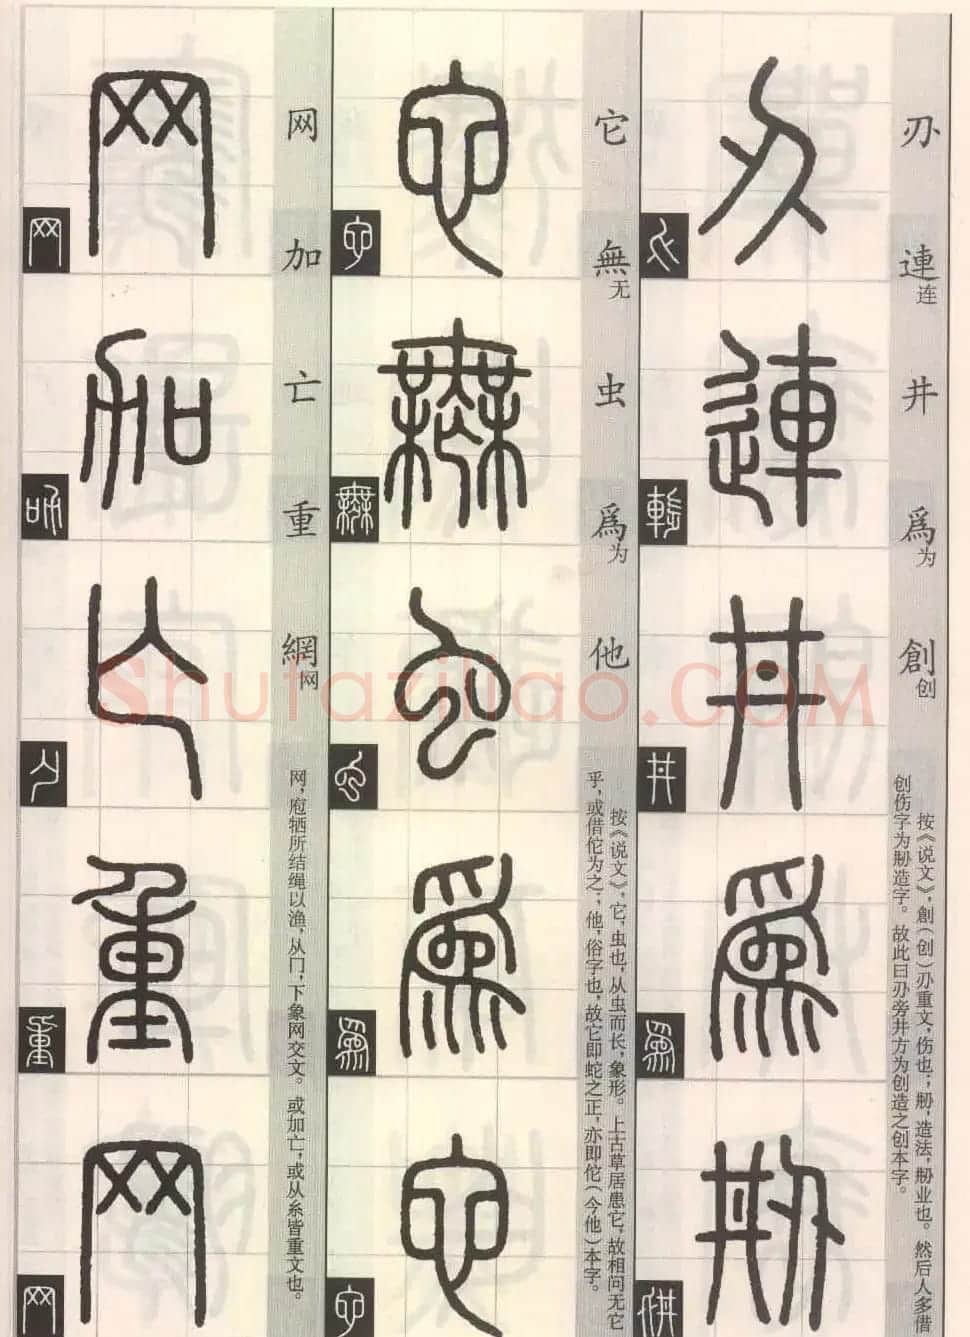 刅連井爲創
连
为
创
按《说文》，創（创）刅重文，伤也；刱，造法，刱业也。然后人多借
创伤字为刱造字。故此曰刅旁井方为创造之创本字。
刅
連
井
爲
刱
它無虫爲他
无
为
按《说文》，它，虫也，从虫而长，象形。上古草居患它，故相问无它
乎，或借佗为之；他，俗字也，故它即蛇之正，亦即佗（今他）本字。
它
無
虫
爲
它
网加亡重網
网
网，庖牺所结绳以渔，从冂，下象网交文。或加亡，或从糸皆重文也。
网
加
亡
重
网
Shufaziliao.com